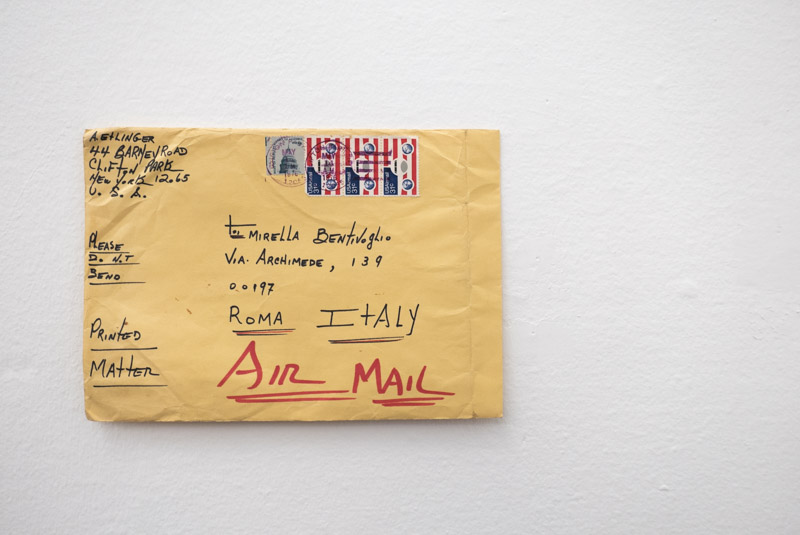 A. EtLINGER
44 BARNEY ROAD
CLIFTON PARK
NEW YORK 12065
U. S. A.
USAirmail
31c
USAirmail
31c
USAirmail
31c
to: MIRELLA BENTIVOGLIO
VIA. ARCHIMEDE, 139
00197
ROMA ITALY
PLEASE
DO NOT
BEND
PRINTED
MATTER
AIR MAIL